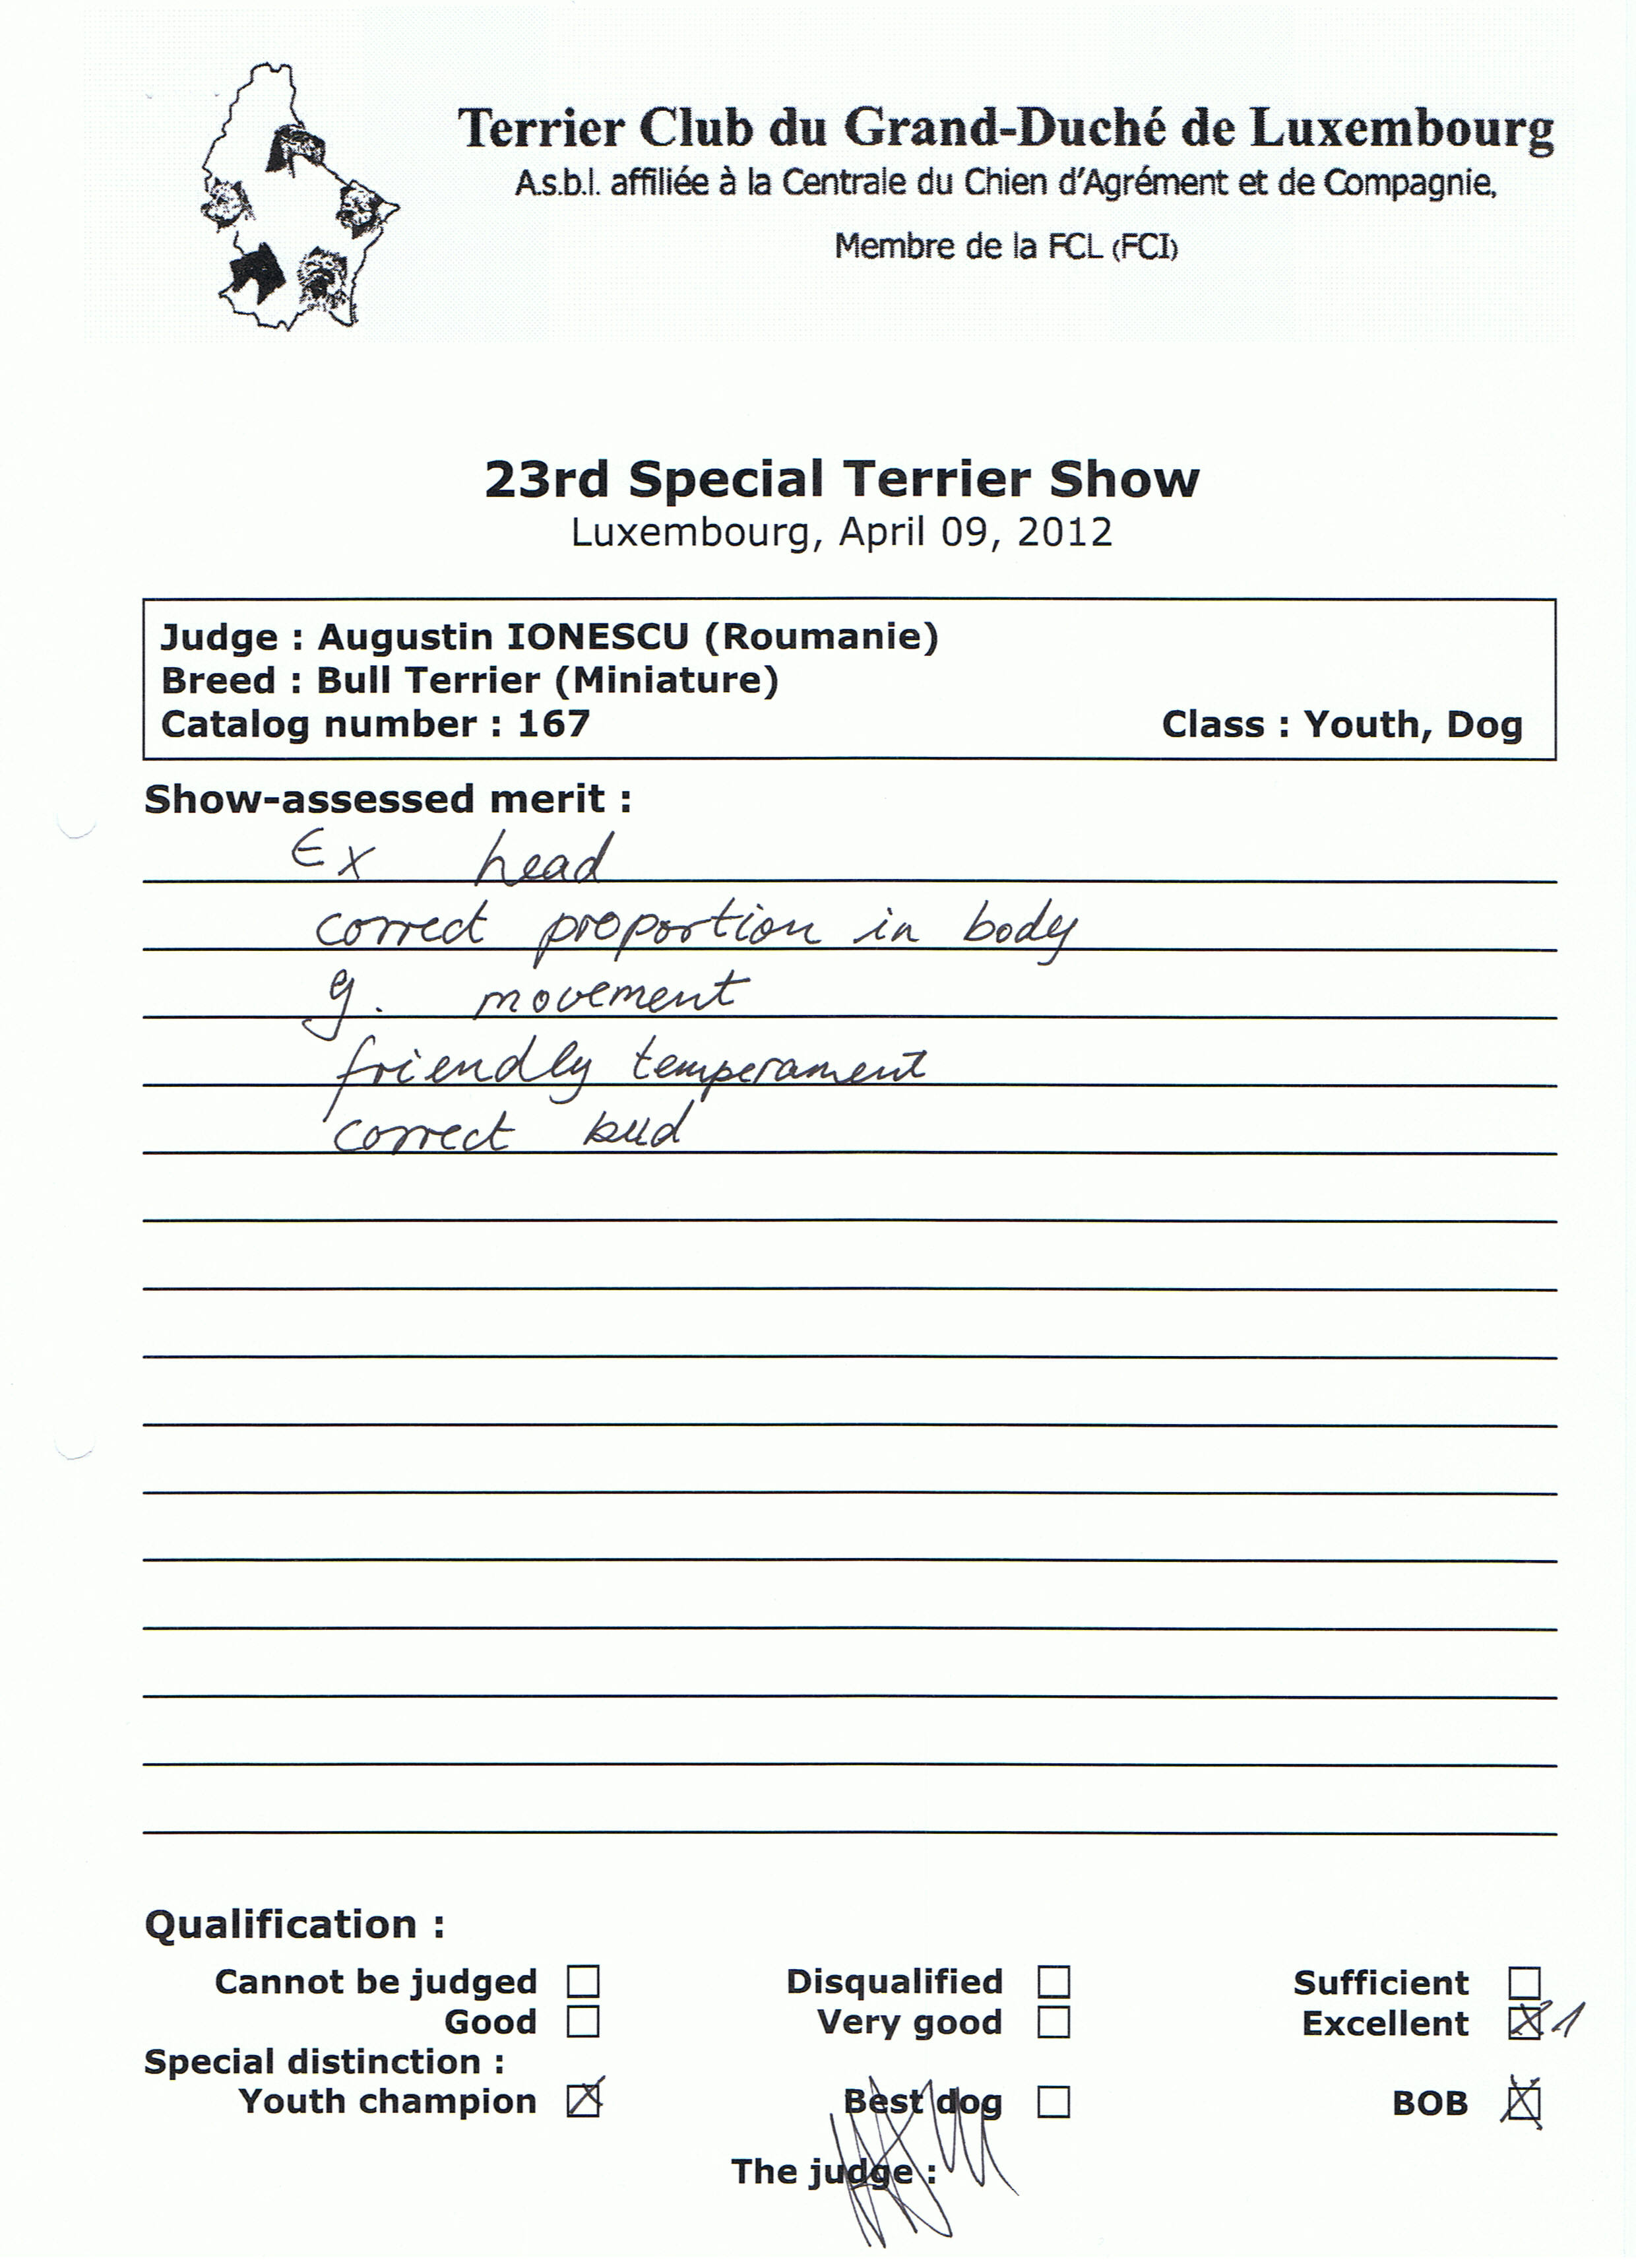 Terrier Club du Grand-Duché de Luxembourg
A.s.b.l. affiliée à la Centrale du Chien d'Agrément et de Compagnie,
Membre de la FCL (FCI)
23rd Special Terrier Show
Luxembourg, April 09, 2012
Judge : Augustin IONESCU (Roumanie)
Breed : Bull Terrier (Miniature)
Catalog number : 167 Class : Youth, Dog
Show-assessed merit :
Ex head
correct proportion in body
g. movement
friendly temperament
correct
Qualification :
Cannot be judged Disqualified Sufficient
Good Very good Excellent 1
Special distinction :
Youth champion Best dog BOB
The judge :